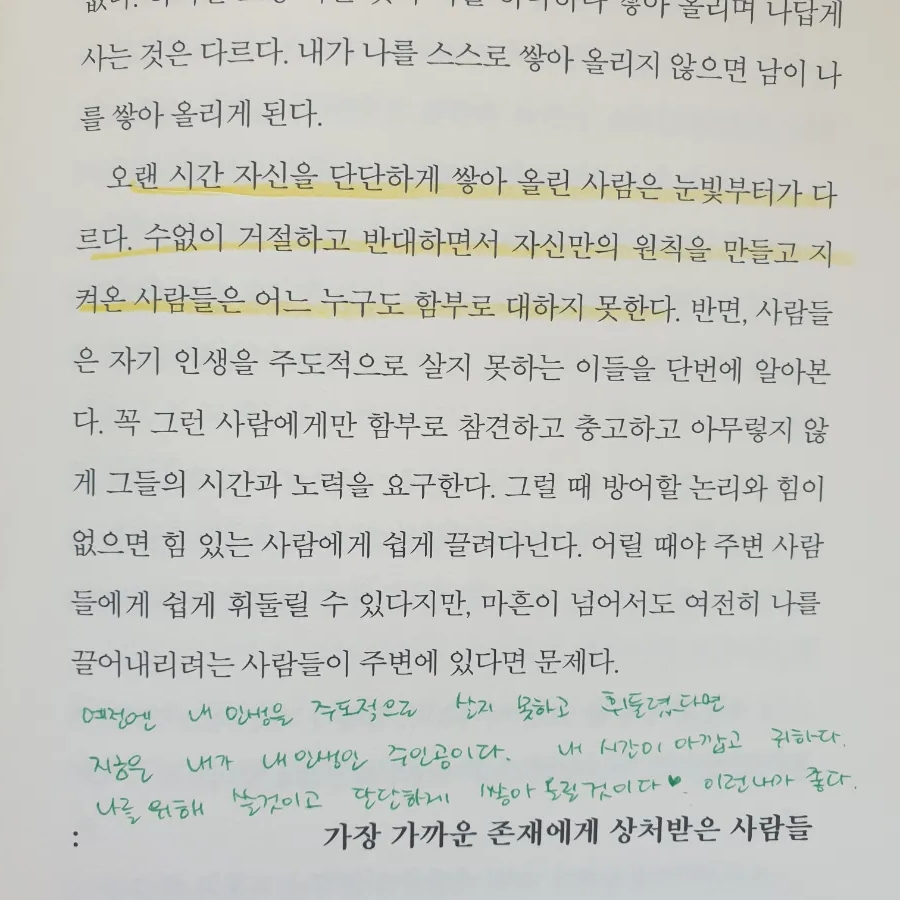 쌓아 올리며 나답게
사는 것은 다르다. 내가 나를 스스로 쌓아 올리지 않으면 남이 나
를 쌓아 올리게 된다.
오랜 시간 자신을 단단하게 쌓아 올린 사람은 눈빛부터가 다
르다. 수없이 거절하고 반대하면서 자신만의 원칙을 만들고 지
켜온 사람들은 어느 누구도 함부로 대하지 못한다. 반면, 사람들
은 자기 인생을 주도적으로 살지 못하는 이들을 단번에 알아본
다. 꼭 그런 사람에게만 함부로 참견하고 충고하고 아무렇지 않
게 그들의 시간과 노력을 요구한다. 그럴 때 방어할 논리와 힘이
없으면 힘 있는 사람에게 쉽게 끌려다닌다. 어릴 때야 주변 사람
들에게 쉽게 휘둘릴 수 있다지만, 마흔이 넘어서도 여전히 나를
끌어내리려는 사람들이 주변에 있다면 문제다.
예전엔 내 인생을 주도적으로 살지 못하고 휘둘렸다면
지금은 내가 내 인생인 주인공이다. 내 시간이 아깝고 귀하다.
나를 위해 쓸것이고 단단하게 쌓아 올릴것이다♥. 이런 내가 좋다.
: 가장 가까운 존재에게 상처받은 사람들